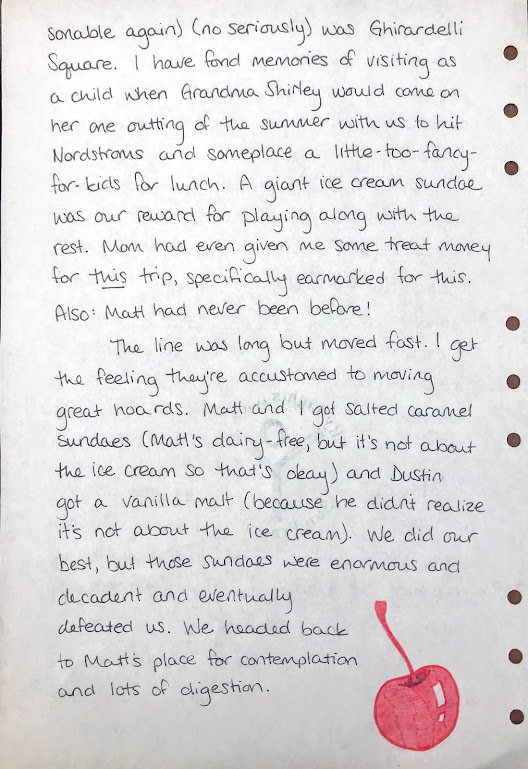 sonable again) (no seriously) was Ghirardelli
Square. I have fond memories of visiting as
a child when Grandma Shirley would come on
her one outting of the summer with us to hit
Nordstroms and someplace a little-too-fancy-
for-kids for lunch. A giant ice cream sundae
was our reward for playing along with the
rest. Mom had even given me some treat money
for this trip, specifically earmarked for this.
Also: Matt had never been before!
The line was long but moved fast. I get
the feeling they're accustomed to moving
great hoards. Matt and I got salted caramel
Sundaes (Matt's dairy-free, but it's not about
the ice cream so that's okay) and Dustin
got a vanilla malt (because he didn't realize
it's not about the ice cream). We did our
best, but those sundaes were enormous and
decadent and eventually
defeated us. We headed back
to Matt's place for contemplation
and lots of digestion.